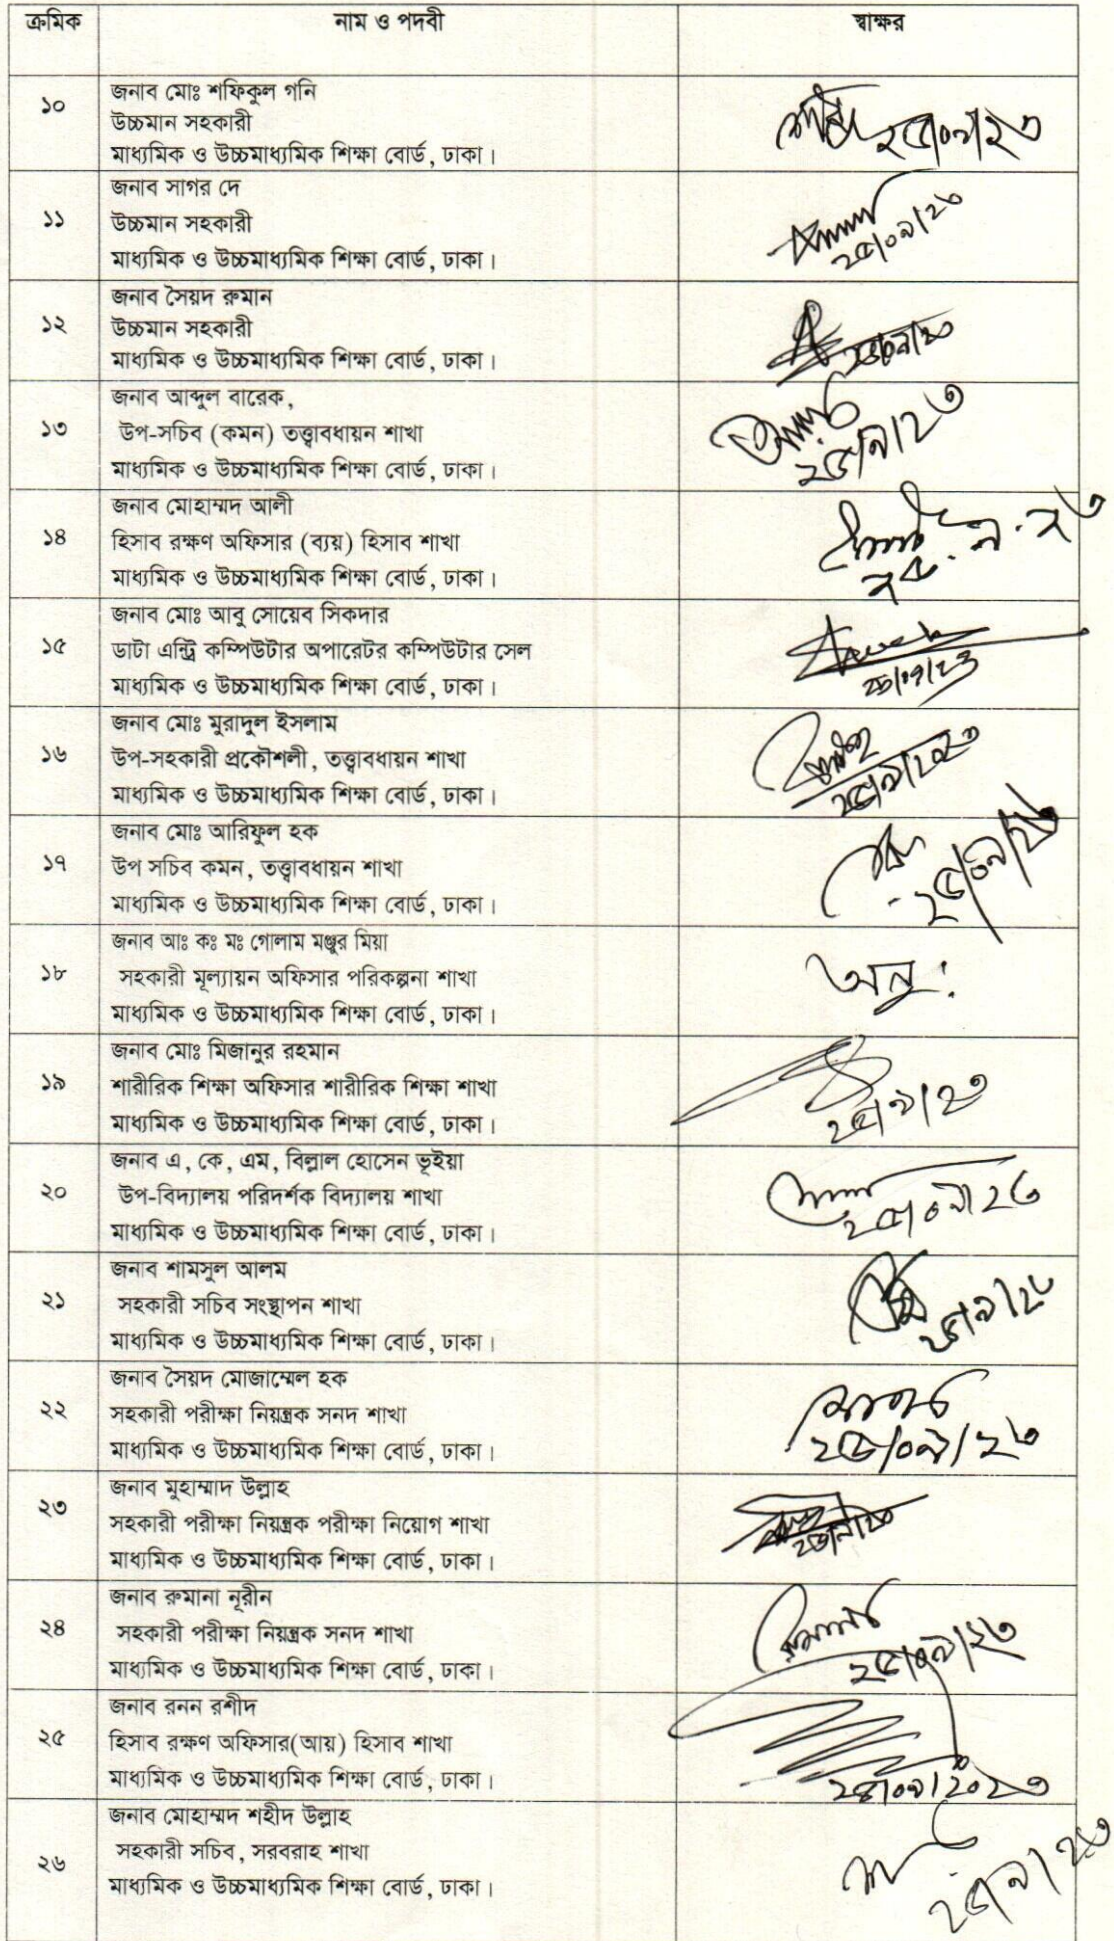 ক্রমিক নাম ও পদবী স্বাক্ষর
১০ জনাব মোঃ শফিকুল গনি
উচ্চমান সহকারী
মাধ্যমিক ও উচ্চমাধ্যমিক শিক্ষা বোর্ড, ঢাকা।
২৫/০৯/২৩
১১ জনাব সাগর দে
উচ্চমান সহকারী
মাধ্যমিক ও উচ্চমাধ্যমিক শিক্ষা বোর্ড, ঢাকা।
২৫/০৯/২৩
১২ জনাব সৈয়দ রুমান
উচ্চমান সহকারী
মাধ্যমিক ও উচ্চমাধ্যমিক শিক্ষা বোর্ড, ঢাকা।
১৩ জনাব আব্দুল বারেক,
উপ-সচিব (কমন) তত্ত্বাবধায়ন শাখা
মাধ্যমিক ও উচ্চমাধ্যমিক শিক্ষা বোর্ড, ঢাকা।
২৫/৯/২৩
১৪ জনাব মোহাম্মদ আলী
হিসাব রক্ষণ অফিসার (ব্যয়) হিসাব শাখা
মাধ্যমিক ও উচ্চমাধ্যমিক শিক্ষা বোর্ড, ঢাকা।
২৫.৯.২৩
১৫ জনাব মোঃ আবু সোয়েব সিকদার
ডাটা এন্ট্রি কম্পিউটার অপারেটর কম্পিউটার সেল
মাধ্যমিক ও উচ্চমাধ্যমিক শিক্ষা বোর্ড, ঢাকা।
১৬ জনাব মোঃ মুরাদুল ইসলাম
উপ-সহকারী প্রকৌশলী, তত্ত্বাবধায়ন শাখা
মাধ্যমিক ও উচ্চমাধ্যমিক শিক্ষা বোর্ড, ঢাকা।
২৫/৯/২০২৩
১৭ জনাব মোঃ আরিফুল হক
উপ সচিব কমন, তত্ত্বাবধায়ন শাখা
মাধ্যমিক ও উচ্চমাধ্যমিক শিক্ষা বোর্ড, ঢাকা।
২৫/০৯/২৩
১৮ জনাব আঃ কঃ মঃ গোলাম মঞ্জুর মিয়া
সহকারী মূল্যায়ন অফিসার পরিকল্পনা শাখা
মাধ্যমিক ও উচ্চমাধ্যমিক শিক্ষা বোর্ড, ঢাকা।
অনু:
১৯ জনাব মোঃ মিজানুর রহমান
শারীরিক শিক্ষা অফিসার শারীরিক শিক্ষা শাখা
মাধ্যমিক ও উচ্চমাধ্যমিক শিক্ষা বোর্ড, ঢাকা।
২৫/৯/২৩
২০ জনাব এ, কে, এম, বিল্লাল হোসেন ভূইয়া
উপ-বিদ্যালয় পরিদর্শক বিদ্যালয় শাখা
মাধ্যমিক ও উচ্চমাধ্যমিক শিক্ষা বোর্ড, ঢাকা।
২৫/০৯/২৩
২১ জনাব শামসুল আলম
সহকারী সচিব সংস্থাপন শাখা
মাধ্যমিক ও উচ্চমাধ্যমিক শিক্ষা বোর্ড, ঢাকা।
২৫/৯/২৩
২২ জনাব সৈয়দ মোজাম্মেল হক
সহকারী পরীক্ষা নিয়ন্ত্রক সনদ শাখা
মাধ্যমিক ও উচ্চমাধ্যমিক শিক্ষা বোর্ড, ঢাকা।
২৫/০৯/২৩
২৩ জনাব মুহাম্মাদ উল্লাহ
সহকারী পরীক্ষা নিয়ন্ত্রক পরীক্ষা নিয়োগ শাখা
মাধ্যমিক ও উচ্চমাধ্যমিক শিক্ষা বোর্ড, ঢাকা।
২৪ জনাব রুমানা নূরীন
সহকারী পরীক্ষা নিয়ন্ত্রক সনদ শাখা
মাধ্যমিক ও উচ্চমাধ্যমিক শিক্ষা বোর্ড, ঢাকা।
২৫/০৯/২৩
২৫ জনাব রনন রশীদ
হিসাব রক্ষণ অফিসার(আয়) হিসাব শাখা
মাধ্যমিক ও উচ্চমাধ্যমিক শিক্ষা বোর্ড, ঢাকা।
২৬ জনাব মোহাম্মদ শহীদ উল্লাহ
সহকারী সচিব, সরবরাহ শাখা
মাধ্যমিক ও উচ্চমাধ্যমিক শিক্ষা বোর্ড, ঢাকা।
২৫/৯/২৩